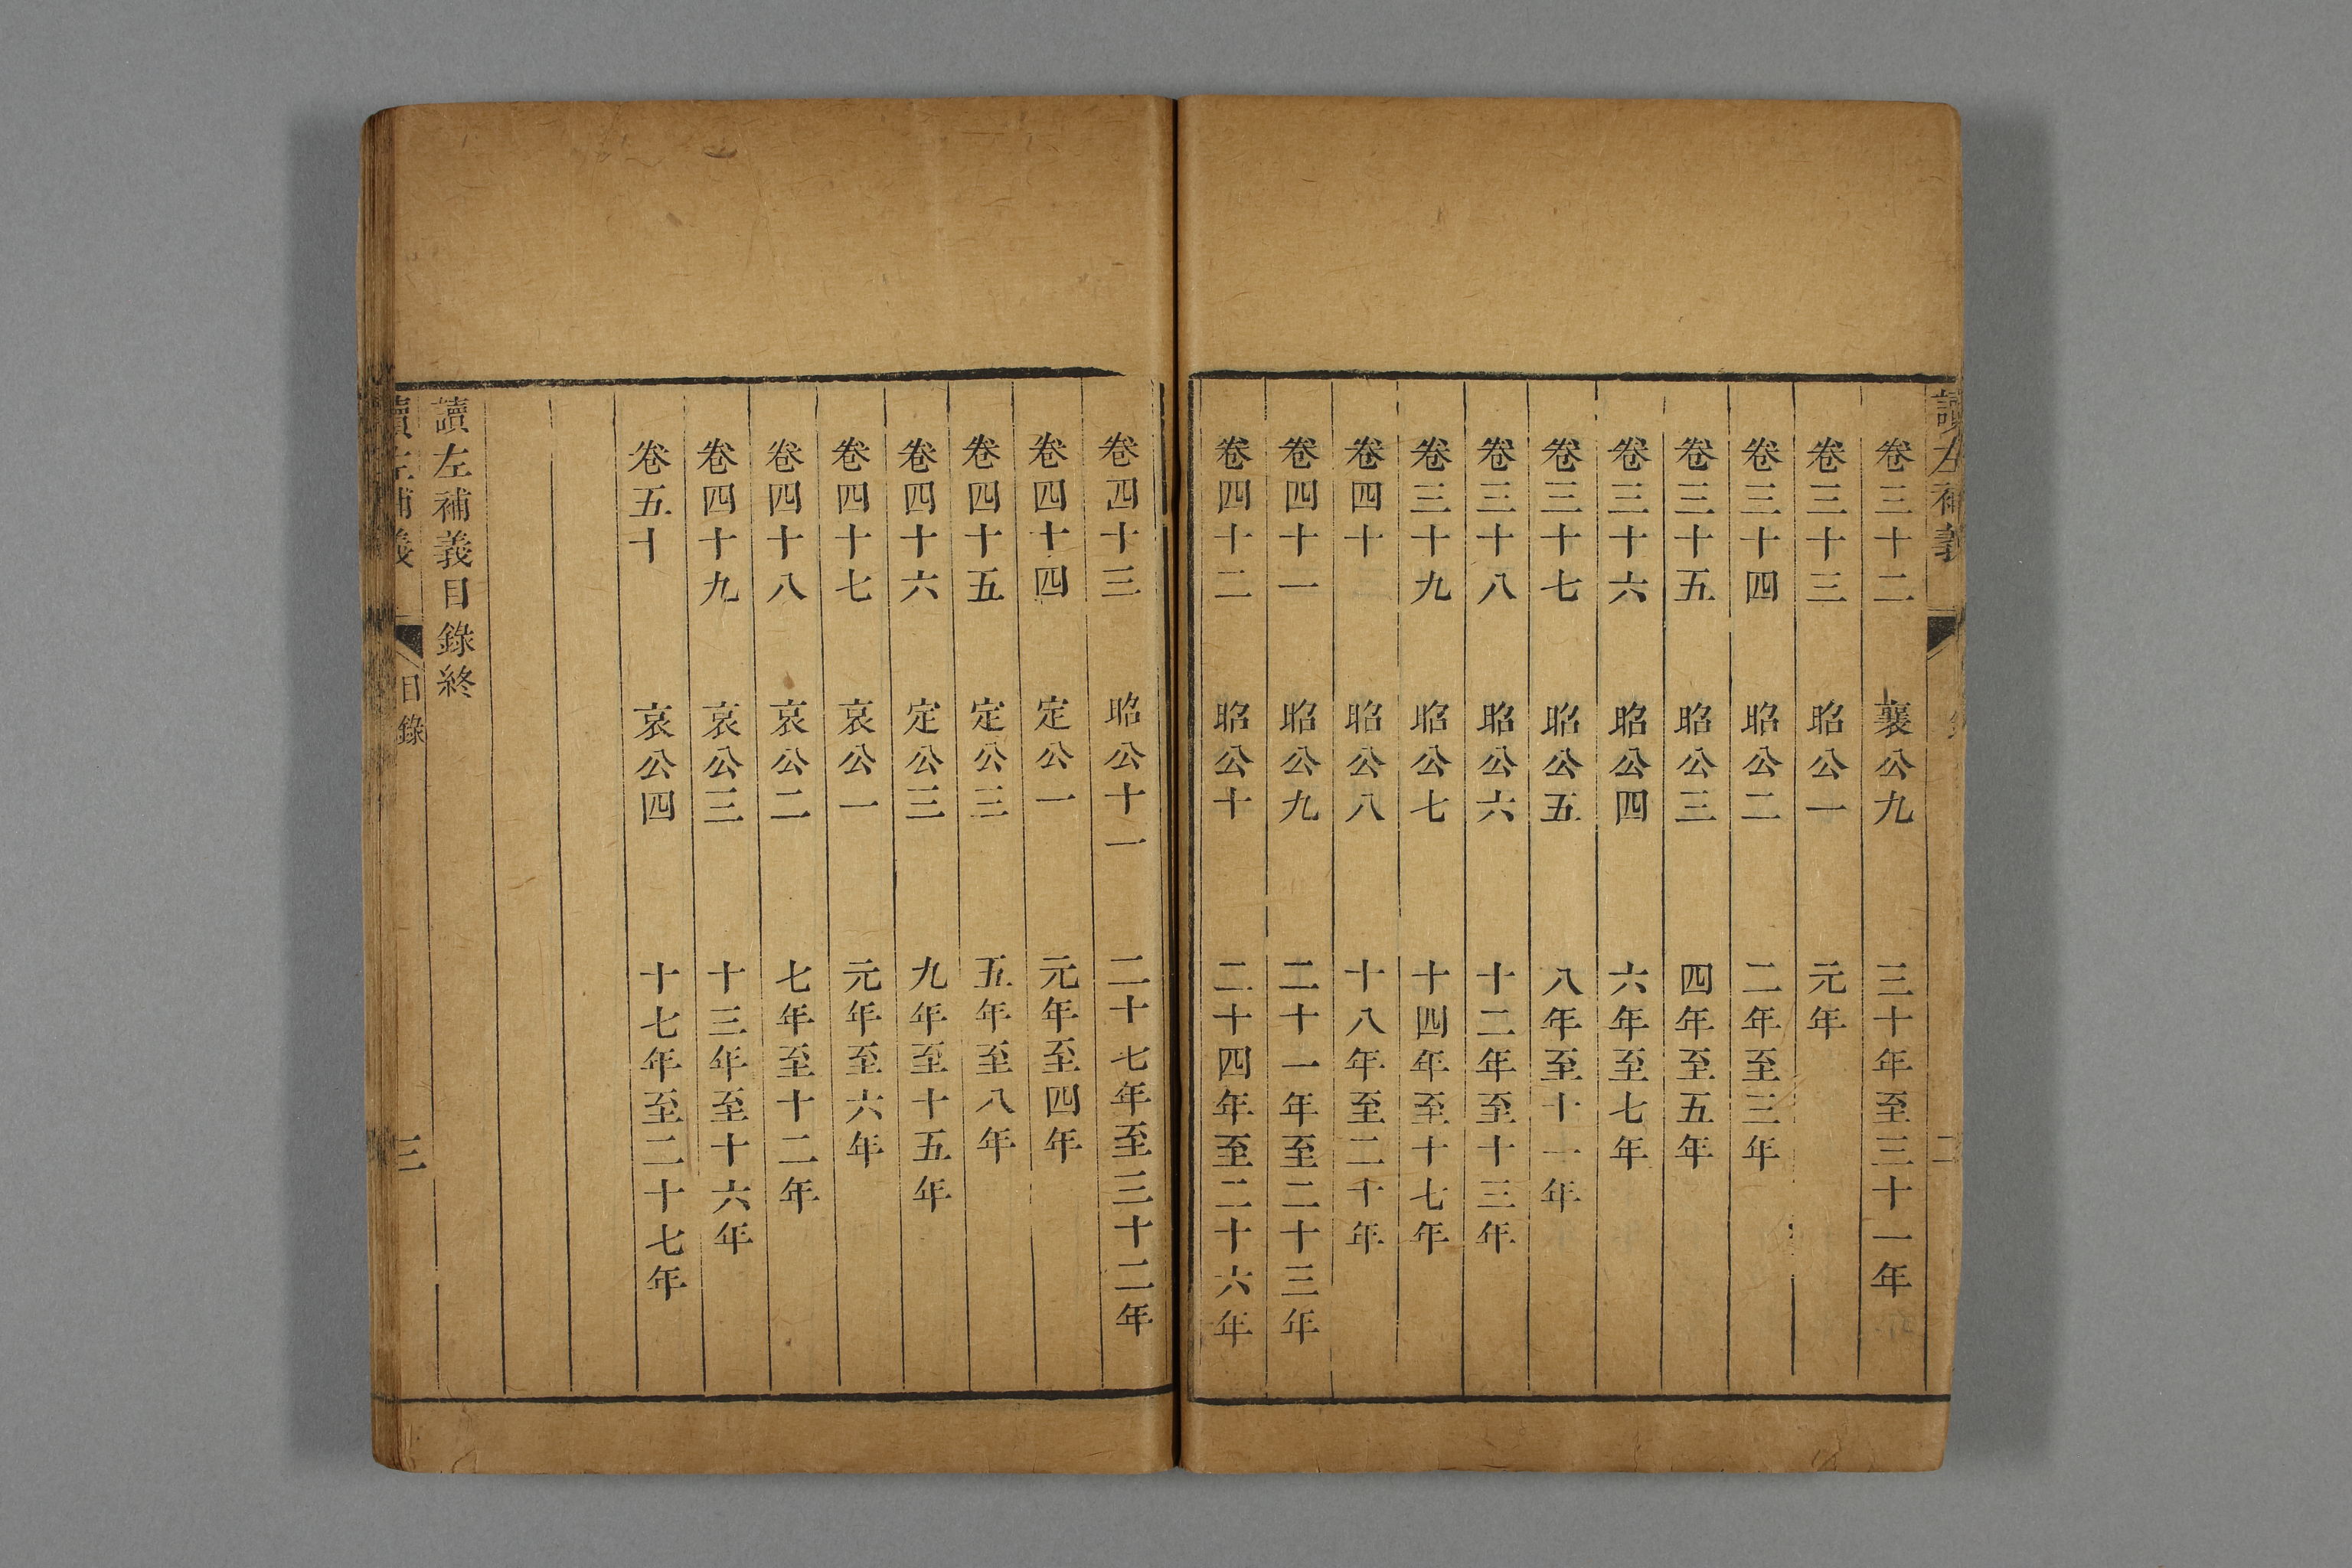 讀左補義
二
卷三十二 襄公九 三十年至三十一年
卷三十三 昭公一 元年
卷三十四 昭公二 二年至三年
卷三十五 昭公三 四年至五年
卷三十六 昭公四 六年至七年
卷三十七 昭公五 八年至十一年
卷三十八 昭公六 十二年至十三年
卷三十九 昭公七 十四年至十七年
卷四十 昭公八 十八年至二十年
卷四十一 昭公九 二十一年至二十三年
卷四十二 昭公十 二十四年至二十六年
卷四十三 昭公十一 二十七年至三十二年
卷四十四 定公一 元年至四年
卷四十五 定公三 五年至八年
卷四十六 定公三 九年至十五年
卷四十七 哀公一 元年至六年
卷四十八 哀公二 七年至十二年
卷四十九 哀公三 十三年至十六年
卷五十 哀公四 十七年至二十七年
讀左補義目錄終
讀左補義 目錄 三